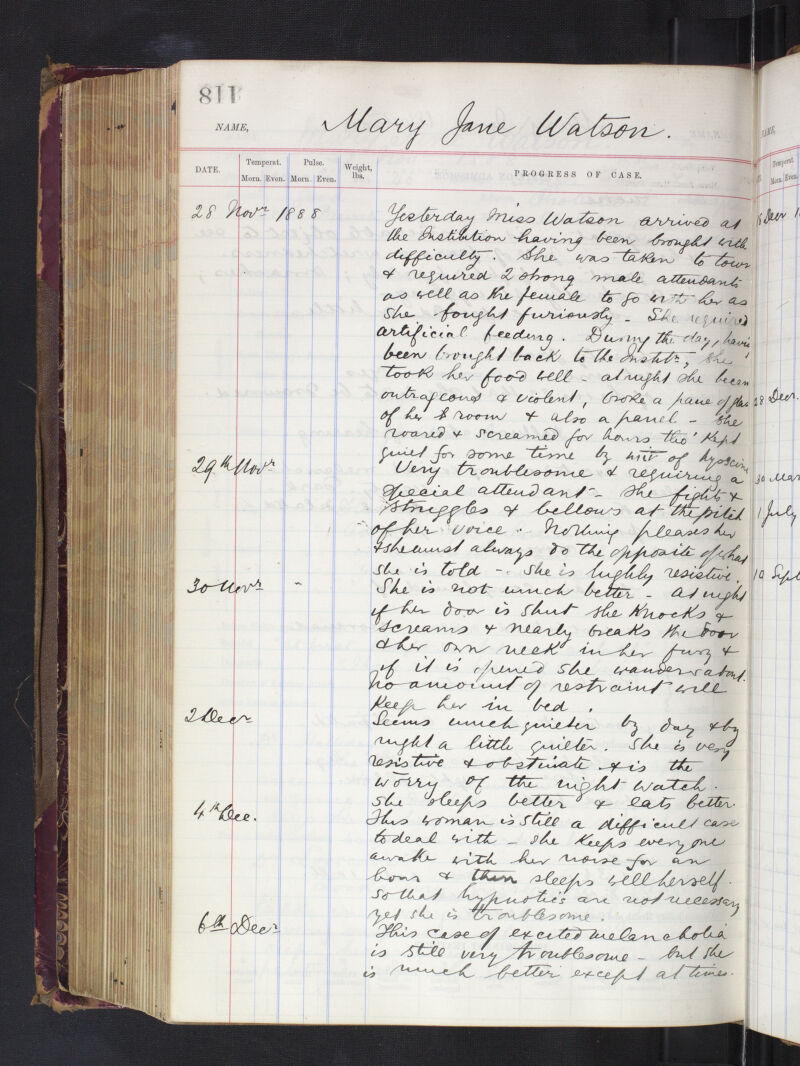 811
NAME, Mary Jane Watson.
DATE. Temperat. Pulse. Weight, lbs. PROGRESS OF CASE.
Morn. Even. Morn. Even.
28 Novr 1888 Yesterday Miss Watson arrived at
the Institution having been brought with
difficulty. She was taken to town
& required 2 strong male attendants
as well as the female to go with her as
she fought furiously - She required
artificial feeding. During the day, having
been brought back to the Instittn, she
took her food well - at night she becam
outrageous & violent, broke a pane of glass
of her room & also a panel - She
roared & screamed for hours tho' kept
quiet for some time by of hyoscine
29th Novr Very troublesome & requiring a
special attendant - She fights &
struggles & bellows at the pitch
of her voice. Nothing pleases her
& she must always do the opposite of what
she is told - She is highly resistive.
30 Novr " She is not much better - At night
if her door is shut she knocks &
screams & nearly breaks the door
& her own neck in her fury &
if it is opened she wanders about.
No amount of restraint will
keep her in bed.
2 Decr Seems much quieter by day & by
night a little quieter. She is very
resistive & obstinate & is the
worry of the night watch.
She sleeps better & eats better.
4th Dec. This woman is still a difficult case
to deal with - She keeps everyone
awake with her noise for an
hour & then sleeps well herself.
So that hypnotics are not necessary
yet she is troublesome.
6th Decr This case of excited melancholia
is still very troublesome - but she
is much better except at times.
NAME,
Temperat.
Morn. Even.
Decr
28 Decr.
30 Mar
1 July
10 Sept